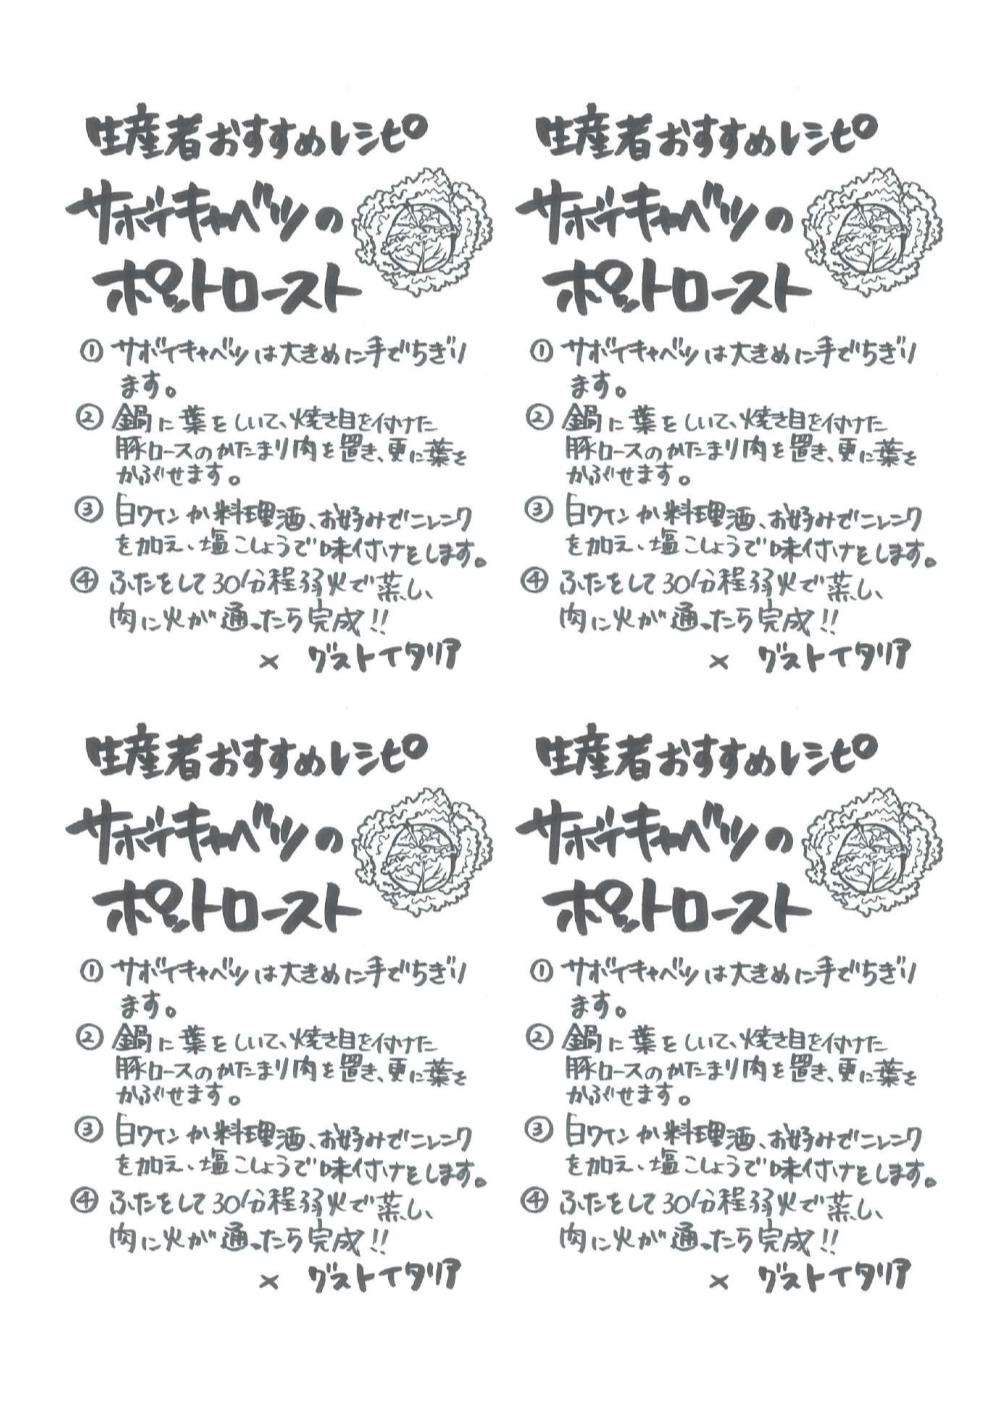 生産者おすすめレシピ
サボイキャベツの
ポットロースト
① サボイキャベツは大きめに手でちぎり
ます。
② 鍋に葉をしいて、焼き目を付けた
豚ロースのかたまり肉を置き、更に葉を
かぶせます。
③ 白ワインか料理酒、お好みでニンニク
を加え、塩こしょうで味付けをします。
④ ふたをして30分程弱火で蒸し、
肉に火が通ったら完成!!
× グストイタリア
生産者おすすめレシピ
サボイキャベツの
ポットロースト
① サボイキャベツは大きめに手でちぎり
ます。
② 鍋に葉をしいて、焼き目を付けた
豚ロースのかたまり肉を置き、更に葉を
かぶせます。
③ 白ワインか料理酒、お好みでニンニク
を加え、塩こしょうで味付けをします。
④ ふたをして30分程弱火で蒸し、
肉に火が通ったら完成!!
× グストイタリア
生産者おすすめレシピ
サボイキャベツの
ポットロースト
① サボイキャベツは大きめに手でちぎり
ます。
② 鍋に葉をしいて、焼き目を付けた
豚ロースのかたまり肉を置き、更に葉を
かぶせます。
③ 白ワインか料理酒、お好みでニンニク
を加え、塩こしょうで味付けをします。
④ ふたをして30分程弱火で蒸し、
肉に火が通ったら完成!!
× グストイタリア
生産者おすすめレシピ
サボイキャベツの
ポットロースト
① サボイキャベツは大きめに手でちぎり
ます。
② 鍋に葉をしいて、焼き目を付けた
豚ロースのかたまり肉を置き、更に葉を
かぶせます。
③ 白ワインか料理酒、お好みでニンニク
を加え、塩こしょうで味付けをします。
④ ふたをして30分程弱火で蒸し、
肉に火が通ったら完成!!
× グストイタリア